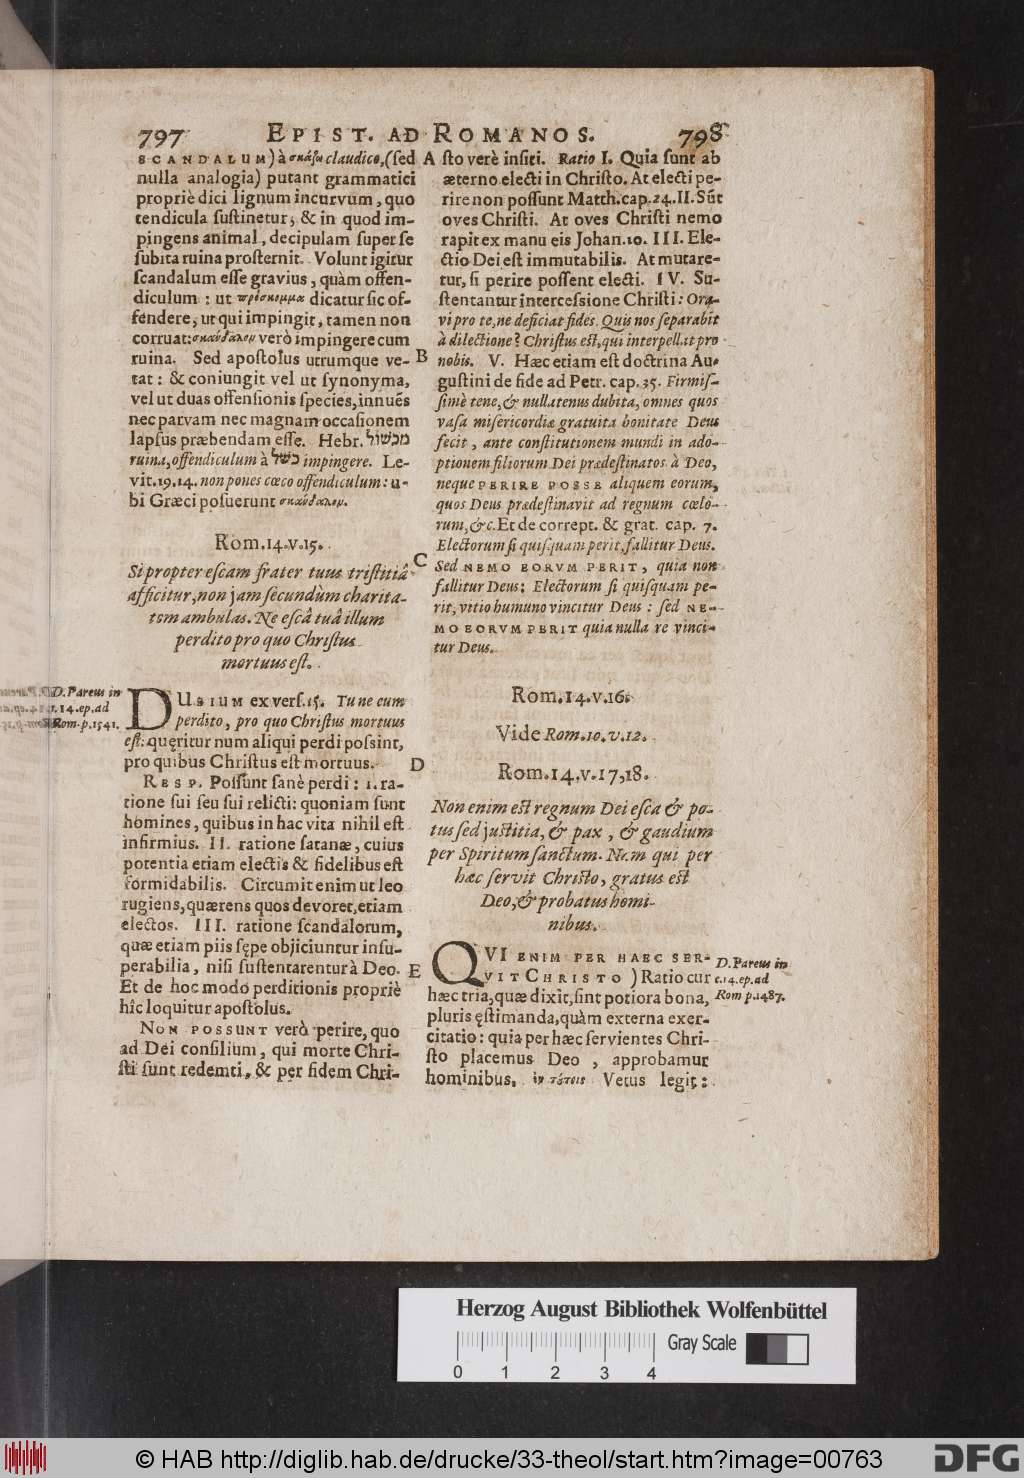 797 EPIST. AD ROMANOS. 798
SCANDALUM) à σκάζω claudico, (sed
nulla analogia) putant grammatici
propriè dici lignum incurvum, quo
tendicula sustinetur; & in quod im-
pingens animal, decipulam super se
subita ruina prosternit. Volunt igitur
scandalum esse gravius, quàm offen-
diculum : ut πρόσκομμα dicatur sic of-
fendere, ut qui impingit, tamen non
corruat: σκάνδαλον verò impingere cum
ruina. Sed apostolus utrumque ve-
tat : & coniungit vel ut synonyma,
vel ut duas offensionis species, innuēs
nec parvam nec magnam occasionem
lapsus præbendam esse. Hebr. מכשול
ruina, offendiculum à כשל impingere. Le-
vit. 19. 14. non pones cœco offendiculum: u-
bi Græci posuerunt σκάνδαλον.
Rom. 14. v. 15.
Si propter escam frater tuus tristitiâ
afficitur, non jam secundùm charita-
tem ambulas. Ne escâ tuâ illum
perdito pro quo Christus
mortuus est.
D. Pareus in
c. 14. ep. ad
Rom. p. 1541.
DUBIUM ex vers. 15. Tu ne eum
perdito, pro quo Christus mortuus
est: quęritur num aliqui perdi possint,
pro quibus Christus est mortuus.
RESP. Possunt sanè perdi : 1. ra-
tione sui seu sui relicti: quoniam sunt
homines, quibus in hac vita nihil est
infirmius. II. ratione satanæ, cuius
potentia etiam electis & fidelibus est
formidabilis. Circumit enim ut leo
rugiens, quærens quos devoret, etiam
electos. III. ratione scandalorum,
quæ etiam piis sępe objiciuntur insu-
perabilia, nisi sustentarentur à Deo.
Et de hoc modo perditionis propriè
hîc loquitur apostolus.
NON POSSUNT verò perire, quo
ad Dei consilium, qui morte Chri-
sti sunt redemti, & per fidem Chri-
A
B
C
D
E
sto verè insiti. Ratio I. Quia sunt ab
æterno electi in Christo. At electi pe-
rire non possunt Matth. cap. 24. II. Sūt
oves Christi. At oves Christi nemo
rapit ex manu eis Johan. 10. III. Ele-
ctio Dei est immutabilis. At mutare-
tur, si perire possent electi. IV. Su-
stentantur intercessione Christi: Ora-
vi pro te, ne deficiat fides. Quis nos separabit
à dilectione? Christus est, qui interpellat pro
nobis. V. Hæc etiam est doctrina Au-
gustini de fide ad Petr. cap. 35. Firmis-
simè tene, & nullatenus dubita, omnes quos
vasa misericordiæ gratuita bonitate Deus
fecit, ante constitutionem mundi in ado-
ptionem filiorum Dei prædestinatos à Deo,
neque PERIRE POSSE aliquem eorum,
quos Deus prædestinavit ad regnum cœlo-
rum, &c. Et de corrept. & grat. cap. 7.
Electorum si quisquam perit, fallitur Deus.
Sed NEMO EORVM PERIT, quia non
fallitur Deus; Electorum si quisquam pe-
rit, vitio humuno vincitur Deus : sed NE-
MO EORVM PERIT quia nulla re vinci-
tur Deus.
Rom. 14. v. 16.
Vide Rom. 10. v. 12.
Rom. 14. v. 17, 18.
Non enim est regnum Dei esca & po-
tus sed justitia, & pax, & gaudium
per Spiritum sanctum. Nam qui per
hæc servit Christo, gratus est
Deo, & probatus homi-
nibus.
QVI ENIM PER HAEC SER-
VIT CHRISTO) Ratio cur
hæc tria, quæ dixit, sint potiora bona,
pluris ęstimanda, quàm externa exer-
citatio: quia per hæc servientes Chri-
sto placemus Deo, approbamur
hominibus. ἐν τούτοις Vetus legit:
D. Pareus in
c. 14. ep. ad
Rom p. 1487.
Herzog August Bibliothek Wolfenbüttel
Gray Scale
0 1 2 3 4
© HAB http://diglib.hab.de/drucke/33-theol/start.htm?image=00763
DFG